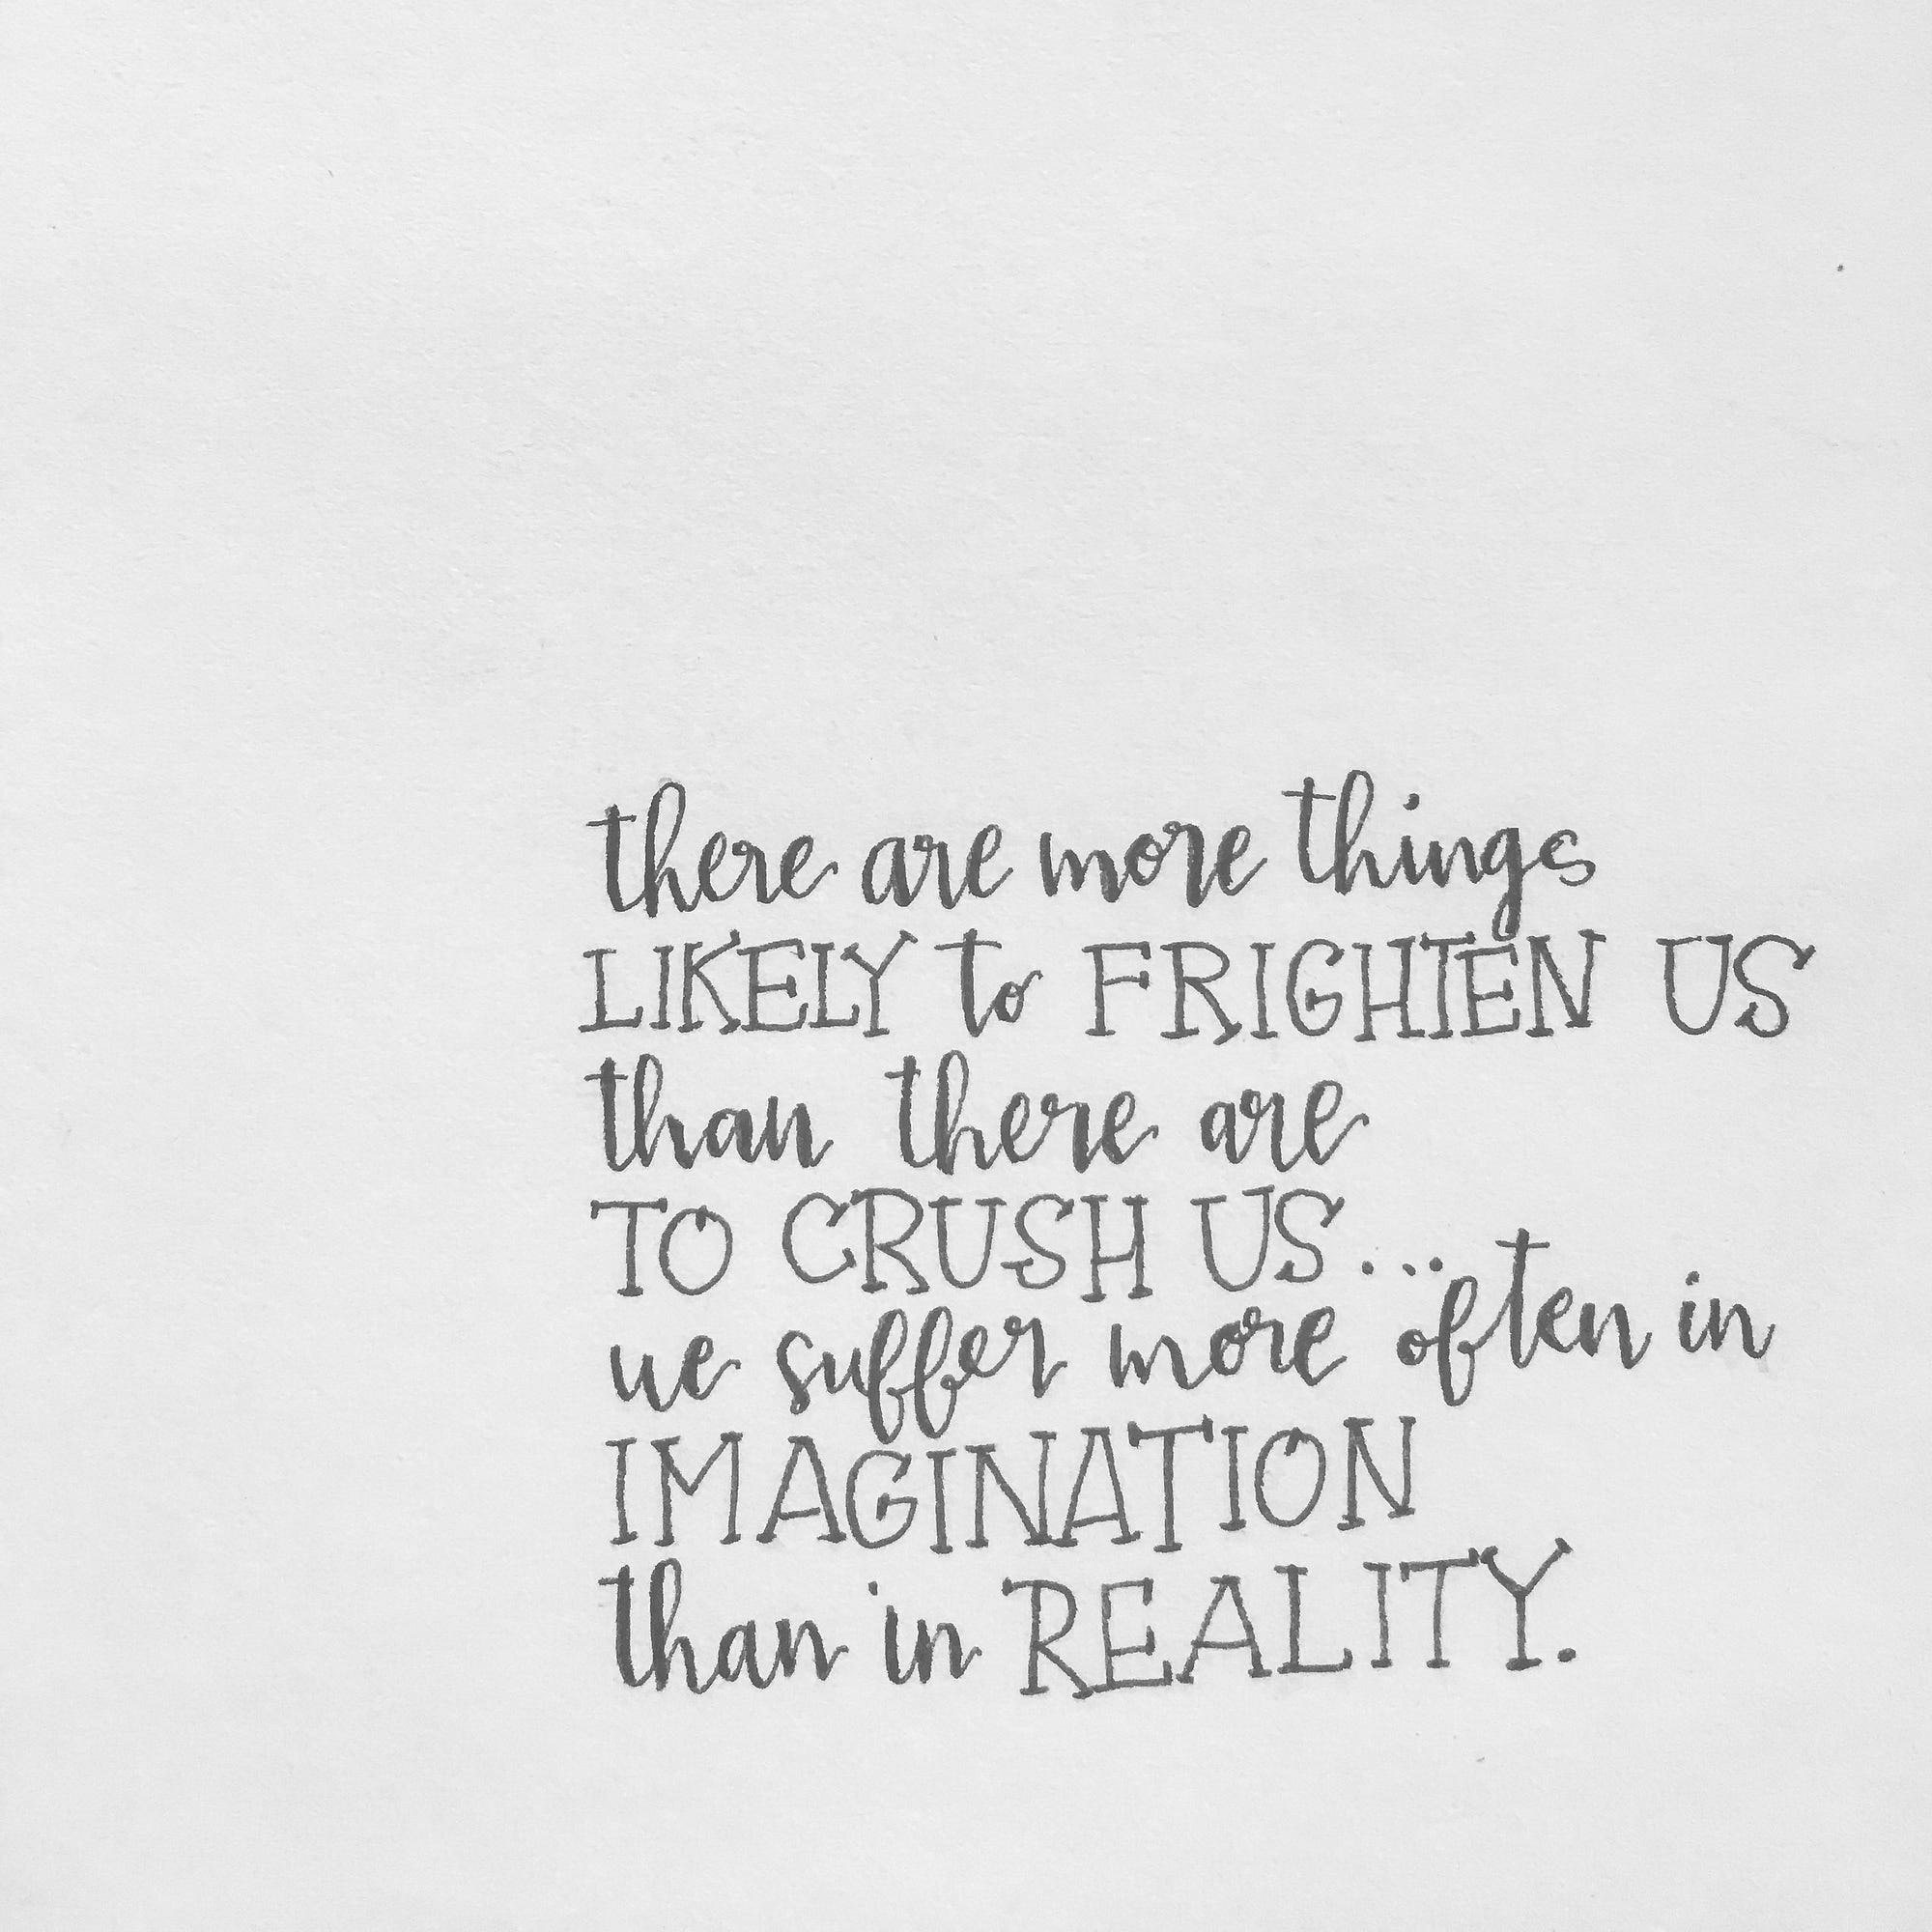 there are more things
LIKELY to FRIGHTEN US
than there are
TO CRUSH US...
we suffer more often in
IMAGINATION
than in REALITY.